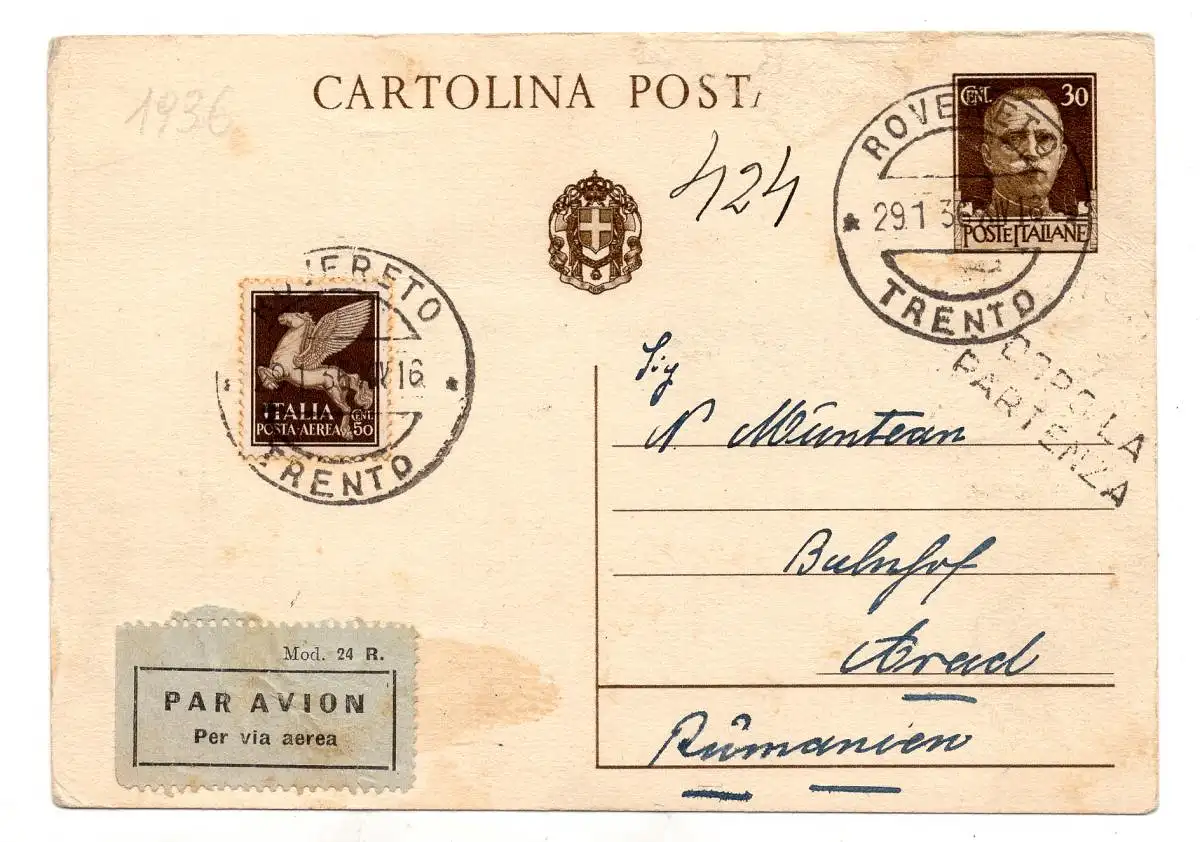 1936
CARTOLINA POSTA
424
CENT. 30
POSTE ITALIANE
ROVERETO
29.1 36 XIV 16
TRENTO
DOPO LA
PARTENZA
ROVERETO
29.1 36 XIV 16
TRENTO
ITALIA CENT.
POSTA-AEREA 50
Sig
N Müntean
Bahnhof
Arad
Rumänien
Mod. 24 R.
PAR AVION
Per via aerea